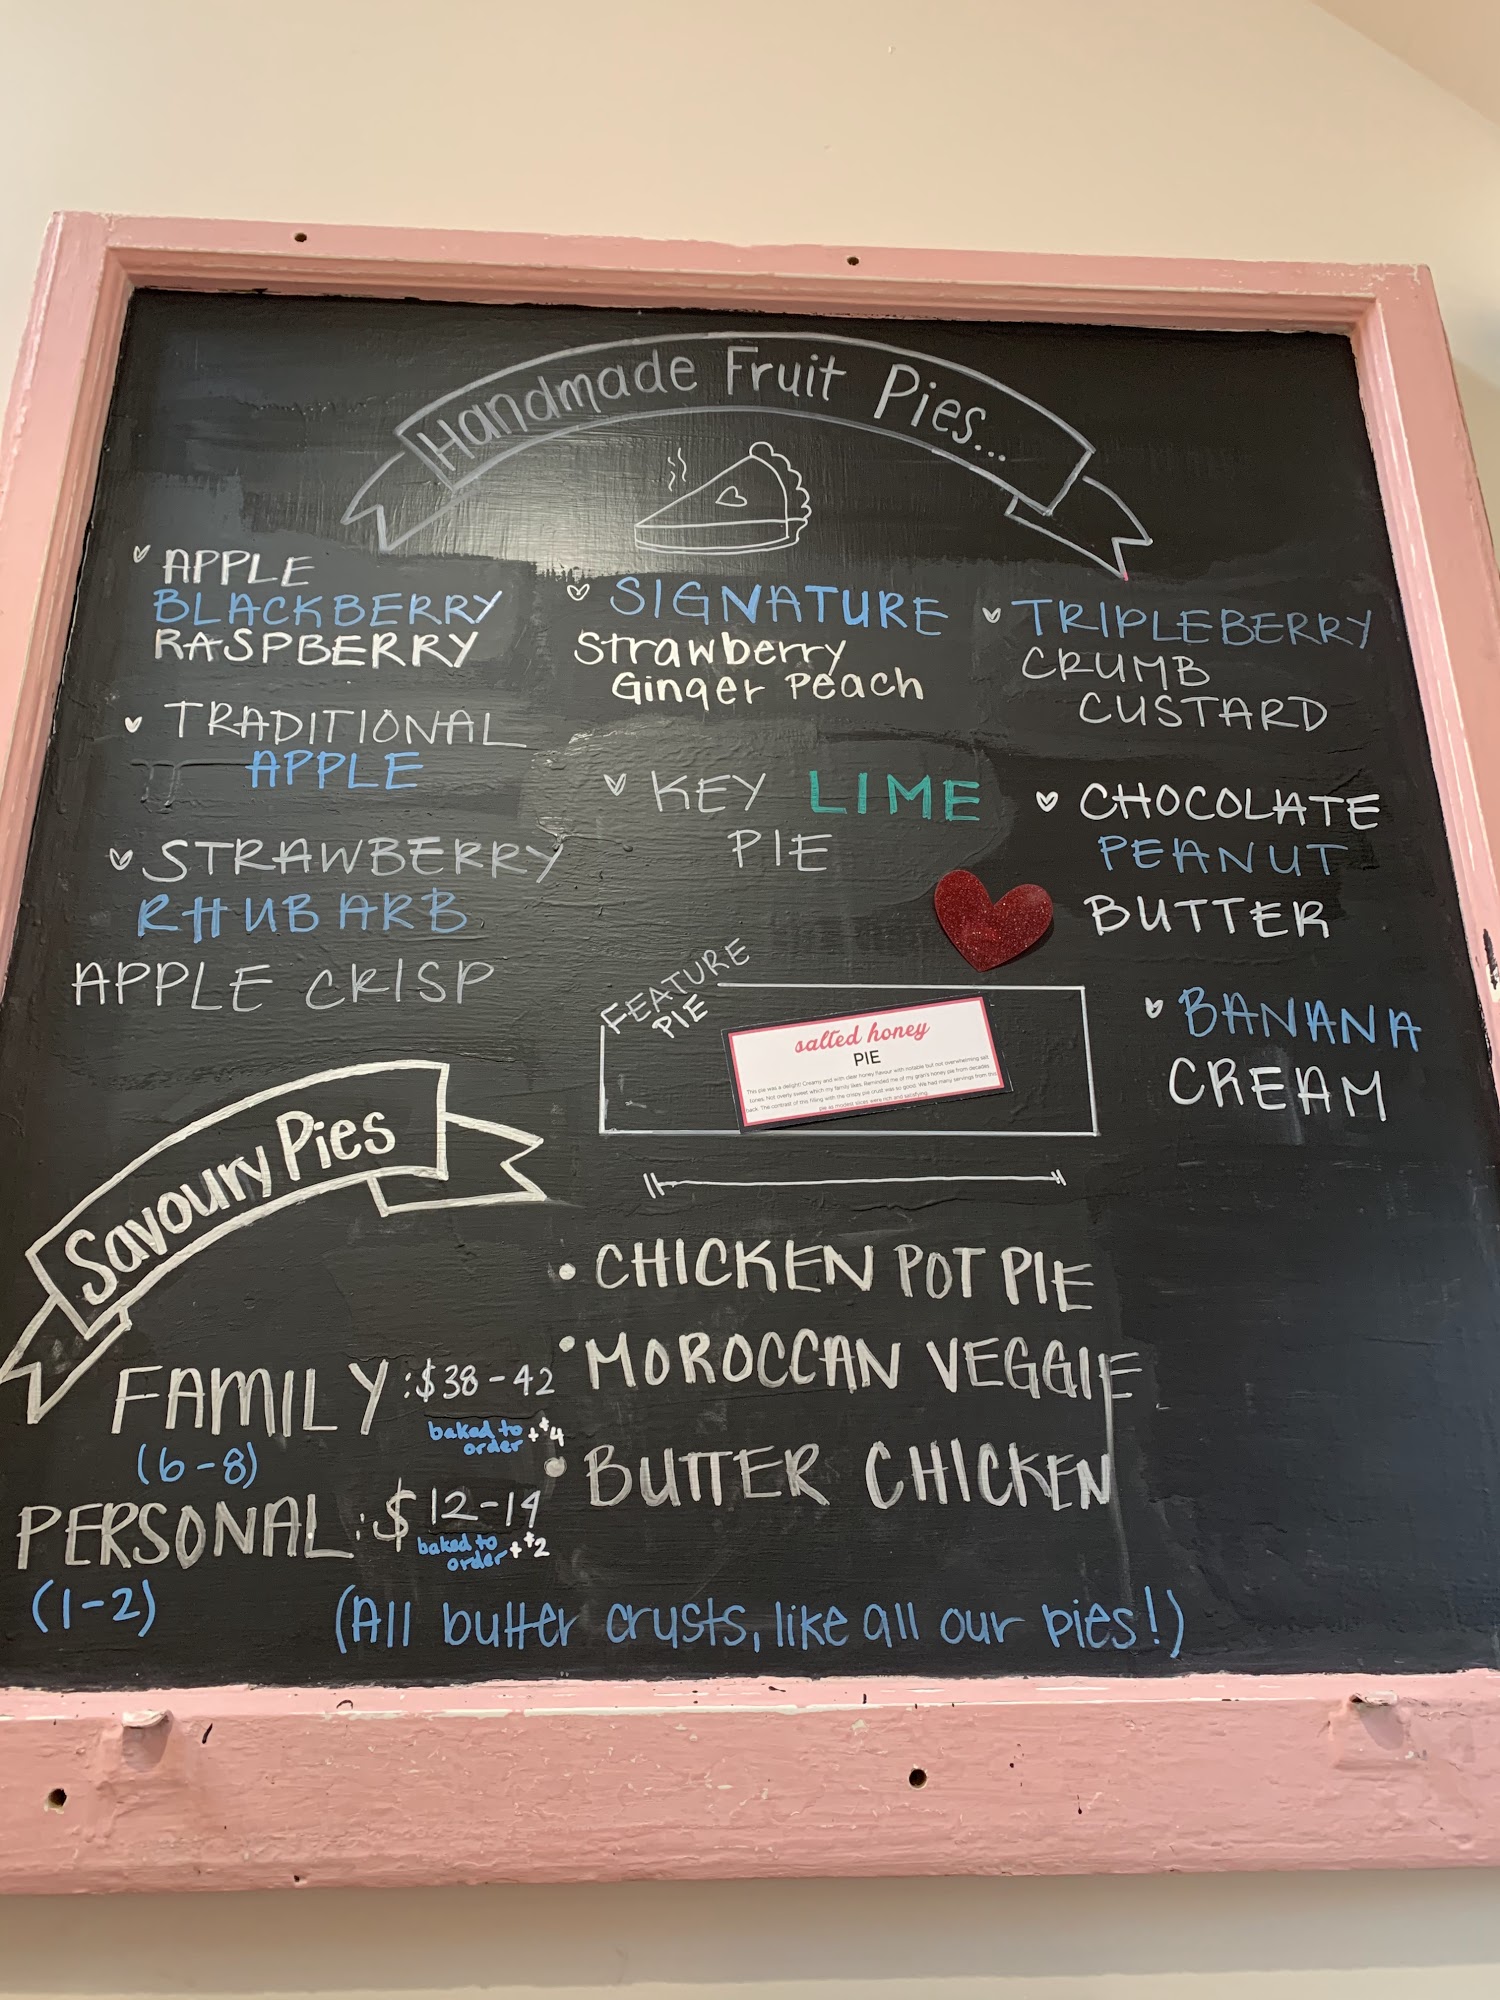 Handmade Fruit Pies...
APPLE
BLACKBERRY
RASPBERRY
TRADITIONAL
APPLE
STRAWBERRY
RHUBARB
APPLE CRISP
SIGNATURE
Strawberry
Ginger Peach
KEY LIME
PIE
TRIPLEBERRY
CRUMB
CUSTARD
CHOCOLATE
PEANUT
BUTTER
BANANA
CREAM
FEATURE
PIE
salted honey
PIE
This pie was a delight! Creamy and with clear honey flavour with notable but not overwhelming salt
tones. Not overly sweet which my family likes. Reminded me of my gran's honey pie from decades
back. The contrast of this filling with the crispy pie crust was so good. We had many servings from this
pie as modest slices were rich and satisfying.
Savoury Pies
FAMILY :$38-42
baked to
order +$4
(6-8)
PERSONAL :$12-14
baked to
order +$2
(1-2)
• CHICKEN POT PIE
• MOROCCAN VEGGIE
• BUTTER CHICKEN
(All butter crusts, like all our pies!)